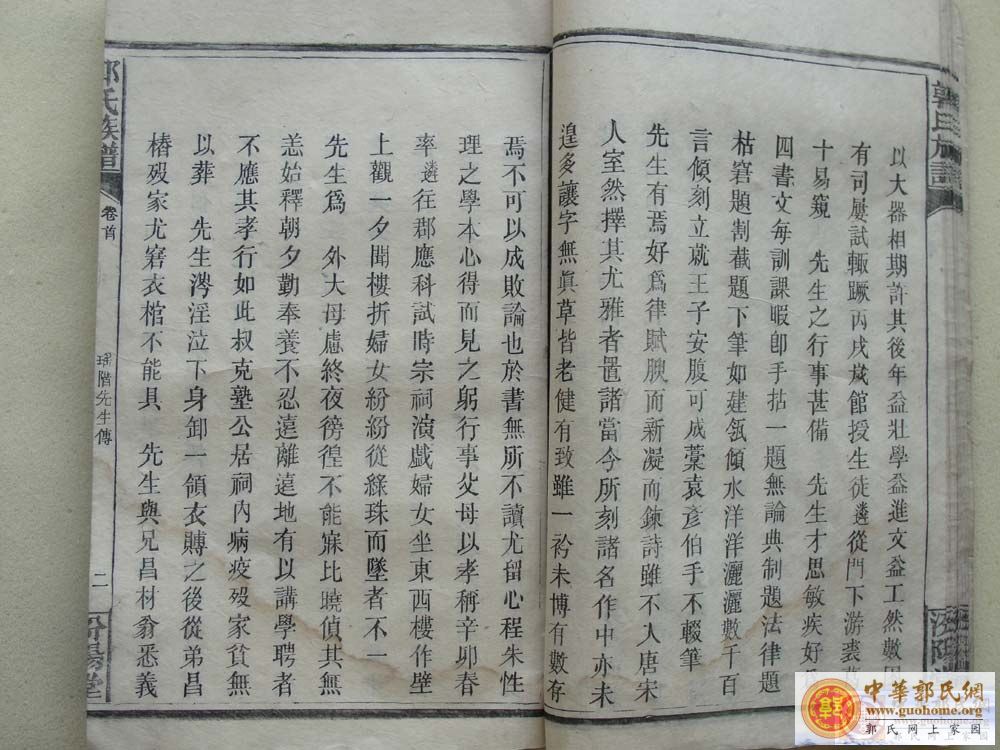 郭氏族譜
以大器相期許其後年益壯學益進文益工然數
有司屢試輒蹶丙戌歲館授生徒遴從門下游裘
十易窺　先生之行事甚備　先生才思敏疾好
四書文每訓課暇卽手拈一題無論典制題法律題
枯窘題割截題下筆如建瓴傾水洋洋灑灑數千百
言傾刻立就王子安腹可成藁袁彥伯手不輟筆
先生有焉好爲律賦腴而新凝而鍊詩雖不人唐宋
人室然擇其尤雅者置諸當今所刻諸名作中亦未
遑多讓字無眞草皆老健有致雖一衿未博有數存
焉不可以成敗論也於書無所不讀尤留心程朱性
理之學本心得而見之躬行事父母以孝稱辛卯春
率遴往郡應科試時宗祠演戲婦女坐東西樓作壁
上觀一夕聞樓折婦女紛紛從綠珠而墜者不一
先生爲　外大母慮終夜徬徨不能寐比曉偵其無
恙始釋朝夕勤奉養不忍遠離遠地有以講學聘者
不應其孝行如此叔克塾公居祠內病疫歿家貧無
以葬　先生涔淫泣下身卸一領衣賻之後從弟昌
椿歿家尤窘衣棺不能具　先生與兄昌材翁悉義
郭氏族譜
卷首
瑤階先生傳
二
汾陽堂
中華郭氏網
www.guohome.org
郭氏网上家园